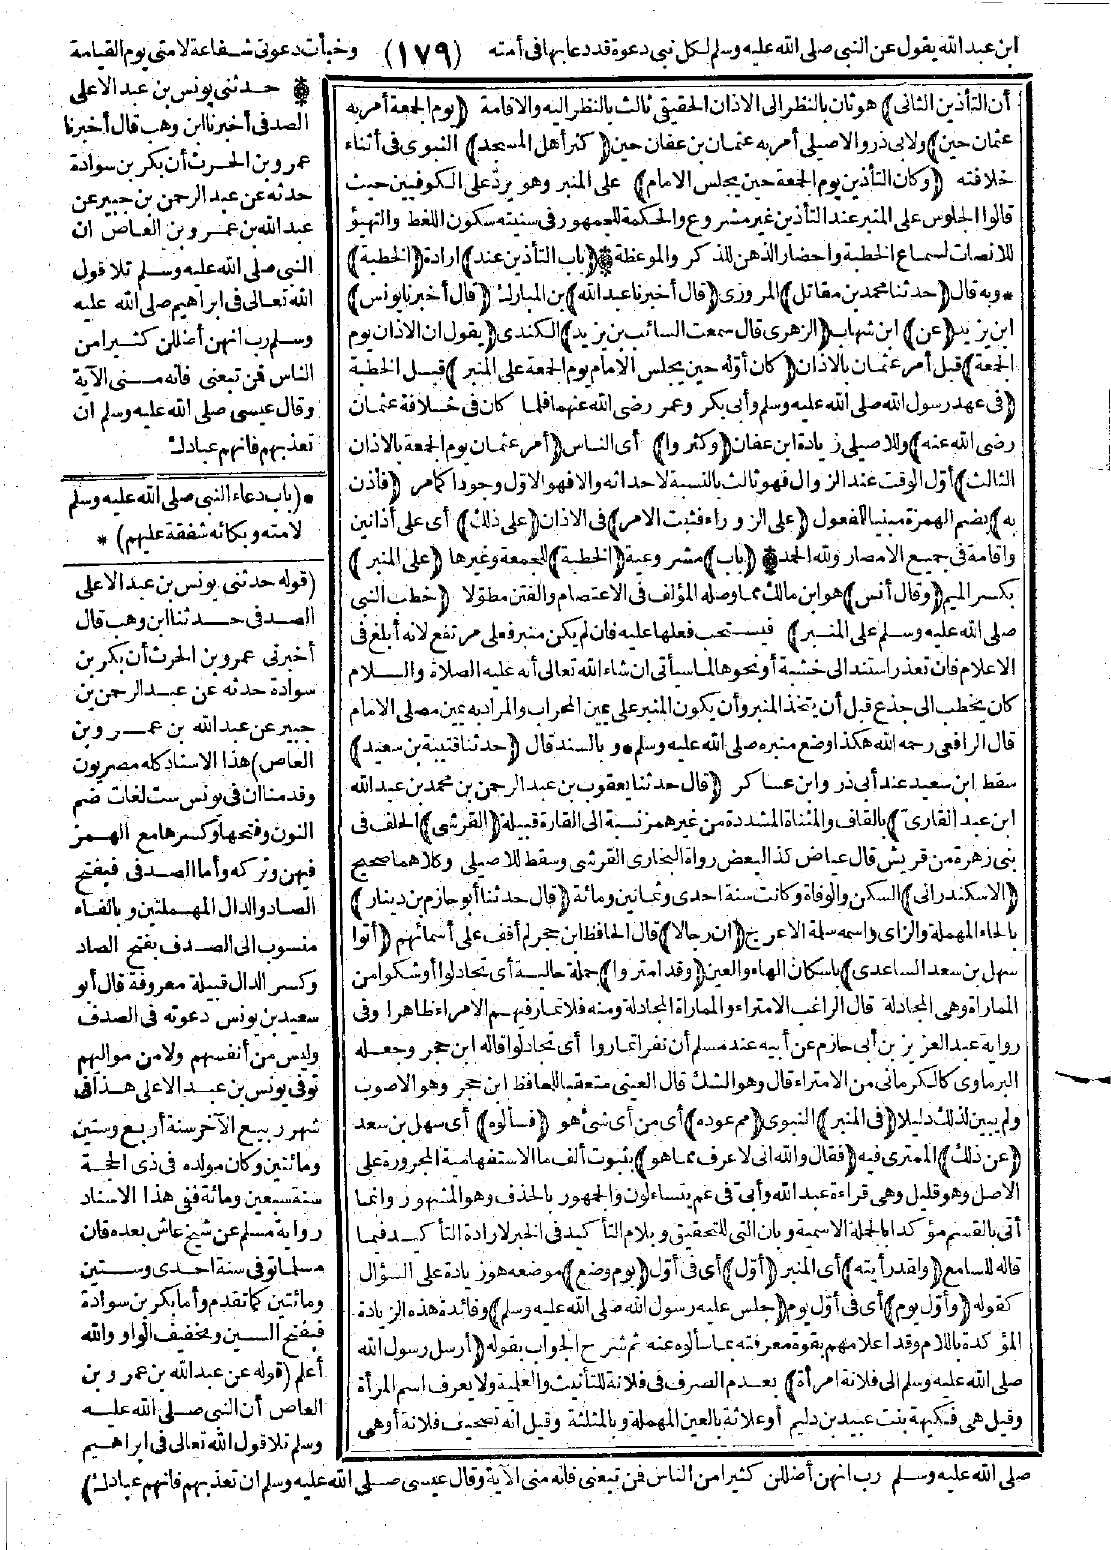 ابن عبد الله يقول عن النبي صلى الله عليه وسلم لكل نبي دعوة قد دعا بها في أمته (١٧٩) وخبأت دعوتي شفاعة لامتي يوم القيامة
أن التأذين الثاني) هو ثان بالنظر الى الاذان الحقيقي ثالث بالنظر اليه والاقامة (يوم الجمعة أمر به
عثمان حين) ولابي ذر والاصيلي أمر به عثمان بن عفان حين (كثر أهل المسجد) النبوى فى أثناء
خلافته (وكان التأذين يوم الجمعة حين يجلس الامام) على المنبر وهو يردّ على الكوفيين حيث
قالوا الجلوس على المنبر عند التأذين غير مشروع والحكمة للجمهور فى سنيته سكون اللغط والتهيؤ
للانصات لسماع الخطبة واحضار الذهن للذكر والموعظة * (باب التأذين عند) ارادة (الخطبة)
* وبه قال (حدثنا محمد بن مقاتل) المروزى (قال أخبرنا عبد الله) بن المبارك (قال أخبرنا يونس)
ابن يزيد (عن) ابن شهاب (الزهرى قال سمعت السائب بن يزيد) الكندى (يقول ان الاذان يوم
الجمعة) قبل أمر عثمان بالاذان (كان أوّله حين يجلس الامام يوم الجمعة على المنبر) قبل الخطبة
(فى عهد رسول الله صلى الله عليه وسلم وأبى بكر وعمر رضى الله عنهما فلما كان فى خلافة عثمان
رضى الله عنه) وللاصيلى زيادة ابن عفان (وكثروا) أى الناس (أمر عثمان يوم الجمعة بالاذان
الثالث) أوّل الوقت عند الزوال فهو ثالث بالنسبة لاحداثه والا فهو الاوّل وجودا كما مر (فأذن
به) بضم الهمزة مبنيا للمفعول (على الزوراء فثبت الامر) فى الاذان (على ذلك) أى على أذانين
واقامة فى جميع الامصار ولله الحمد * (باب) مشروعية (الخطبة) للجمعة وغيرها (على المنبر)
بكسر الميم (وقال أنس) هو ابن مالك مما وصله المؤلف فى الاعتصام والفتن مطوّلا (خطب النبى
صلى الله عليه وسلم على المنبر) فيستحب فعلها عليه فان لم يكن منبر فعلى مرتفع لانه أبلغ فى
الاعلام فان تعذر استند الى خشبة أو نحوها لما سيأتى ان شاء الله تعالى أنه عليه الصلاة والسلام
كان يخطب الى جذع قبل أن يتخذ المنبر وأن يكون المنبر على يمين المحراب والمراد به يمين مصلى الامام
قال الرافعى رحمه الله هكذا وضع منبره صلى الله عليه وسلم * وبالسند قال (حدثنا قتيبة بن سعيد)
سقط ابن سعيد عند أبى ذر وابن عساكر (قال حدثنا يعقوب بن عبد الرحمن بن محمد بن عبد الله
ابن عبد القارىّ) بالقاف والمثناة المشددة من غير همز نسبة الى القارة قبيلة (القرشى) الحلف فى
بنى زهرة من قريش قال عياض كذا لبعض رواة البخارى القرشى وسقط للاصيلى وكلاهما صحيح
(الاسكندرانى) السكن والوفاة وكانت سنة احدى وثمانين ومائة (قال حدثنا أبو حازم بن دينار)
بالحاء المهملة والزاى واسمه سلمة الاعرج (ان رجالا) قال الحافظ ابن حجر لم أقف على أسمائهم (أتوا
سهل بن سعد الساعدى) باسكان الهاء والعين (وقد امتروا) جملة حالية أى تجادلوا أو شكوا من
المماراة وهى المجادلة قال الراغب الامتراء والمماراة المجادلة ومنه فلا تمار فيهم الا مراء ظاهرا وفى
رواية عبد العزيز بن أبى حازم عن أبيه عند مسلم أن نفرا تماروا أى تجادلوا قاله ابن حجر وجعله
البرماوى كالكرمانى من الامتراء قال وهو الشك قال العينى متعقبا للحافظ ابن حجر وهو الاصوب
ولم يبين لذلك دليلا (فى المنبر) النبوى (مم عوده) أى من أى شئ هو (فسألوه) أى سهل بن سعد
(عن ذلك) الممترى فيه (فقال والله انى لاعرف مما هو) بثبوت ألف ما الاستفهامية المجرورة على
الاصل وهو قليل وهى قراءة عبد الله وأبىّ فى عم يتساءلون والجمهور بالحذف وهو المشهور وانما
أتى بالقسم مؤكدا بالجملة الاسمية وبان التى للتحقيق وبلام التأكيد فى الخبر لارادة التأكيد فيما
قاله للسامع (ولقد رأيته) أى المنبر (أوّل) أى فى أوّل (يوم وضع) موضعه هو زيادة على السؤال
كقوله (وأوّل يوم) أى فى أوّل يوم (جلس عليه رسول الله صلى الله عليه وسلم) وفائدة هذه الزيادة
المؤكدة باللام وقد اعلامهم بقوة معرفته بما سألوه عنه ثم شرح الجواب بقوله (أرسل رسول الله
صلى الله عليه وسلم الى فلانة امرأة) بعدم الصرف فى فلانة للتأنيث والعلمية ولا يعرف اسم المرأة
وقيل هى فكيهة بنت عبيد بن دليم أو علاثة بالعين المهملة وبالمثلثة وقيل انه تصحيف فلانة أو هى
* حدثنى يونس بن عبد الاعلى
الصدفى أخبرنا ابن وهب قال أخبرنا
عمرو بن الحرث أن بكر بن سوادة
حدثه عن عبد الرحمن بن جبير عن
عبد الله بن عمرو بن العاص ان
النبى صلى الله عليه وسلم تلا قول
الله تعالى فى ابراهيم صلى الله عليه
وسلم رب انهن أضللن كثيرا من
الناس فمن تبعنى فانه منى الآية
وقال عيسى صلى الله عليه وسلم ان
تعذبهم فانهم عبادك
* (باب دعاء النبى صلى الله عليه وسلم
لامته وبكائه شفقة عليهم) *
(قوله حدثنى يونس بن عبد الاعلى
الصدفى حدثنا ابن وهب قال
أخبرنى عمرو بن الحرث أن بكر بن
سوادة حدثه عن عبد الرحمن بن
جبير عن عبد الله بن عمرو بن
العاص) هذا الاسناد كله مصريون
وقدمنا ان فى يونس ست لغات ضم
النون وفتحها وكسرها مع الهمز
فيهن وتركه وأما الصدفى فبفتح
الصاد والدال المهملتين وبالفاء
منسوب الى الصدف بفتح الصاد
وكسر الدال قبيلة معروفة قال أبو
سعيد بن يونس دعوته فى الصدف
وليس من أنفسهم ولا من مواليهم
توفى يونس بن عبد الاعلى هذا فى
شهر ربيع الآخر سنة أربع وستين
ومائتين وكان مولده فى ذى الحجة
سنة سبعين ومائة ففى هذا الاسناد
رواية مسلم عن شيخ عاش بعده فان
مسلما توفى سنة احدى وستين
ومائتين كما تقدم وأما بكر بن سوادة
فبفتح السين وتخفيف الواو والله
أعلم (قوله عن عبد الله بن عمرو بن
العاص أن النبى صلى الله عليه
وسلم تلا قول الله تعالى فى ابراهيم
صلى الله عليه وسلم رب انهن أضللن كثيرا من الناس فمن تبعنى فانه منى الآية وقال عيسى صلى الله عليه وسلم ان تعذبهم فانهم عبادك)